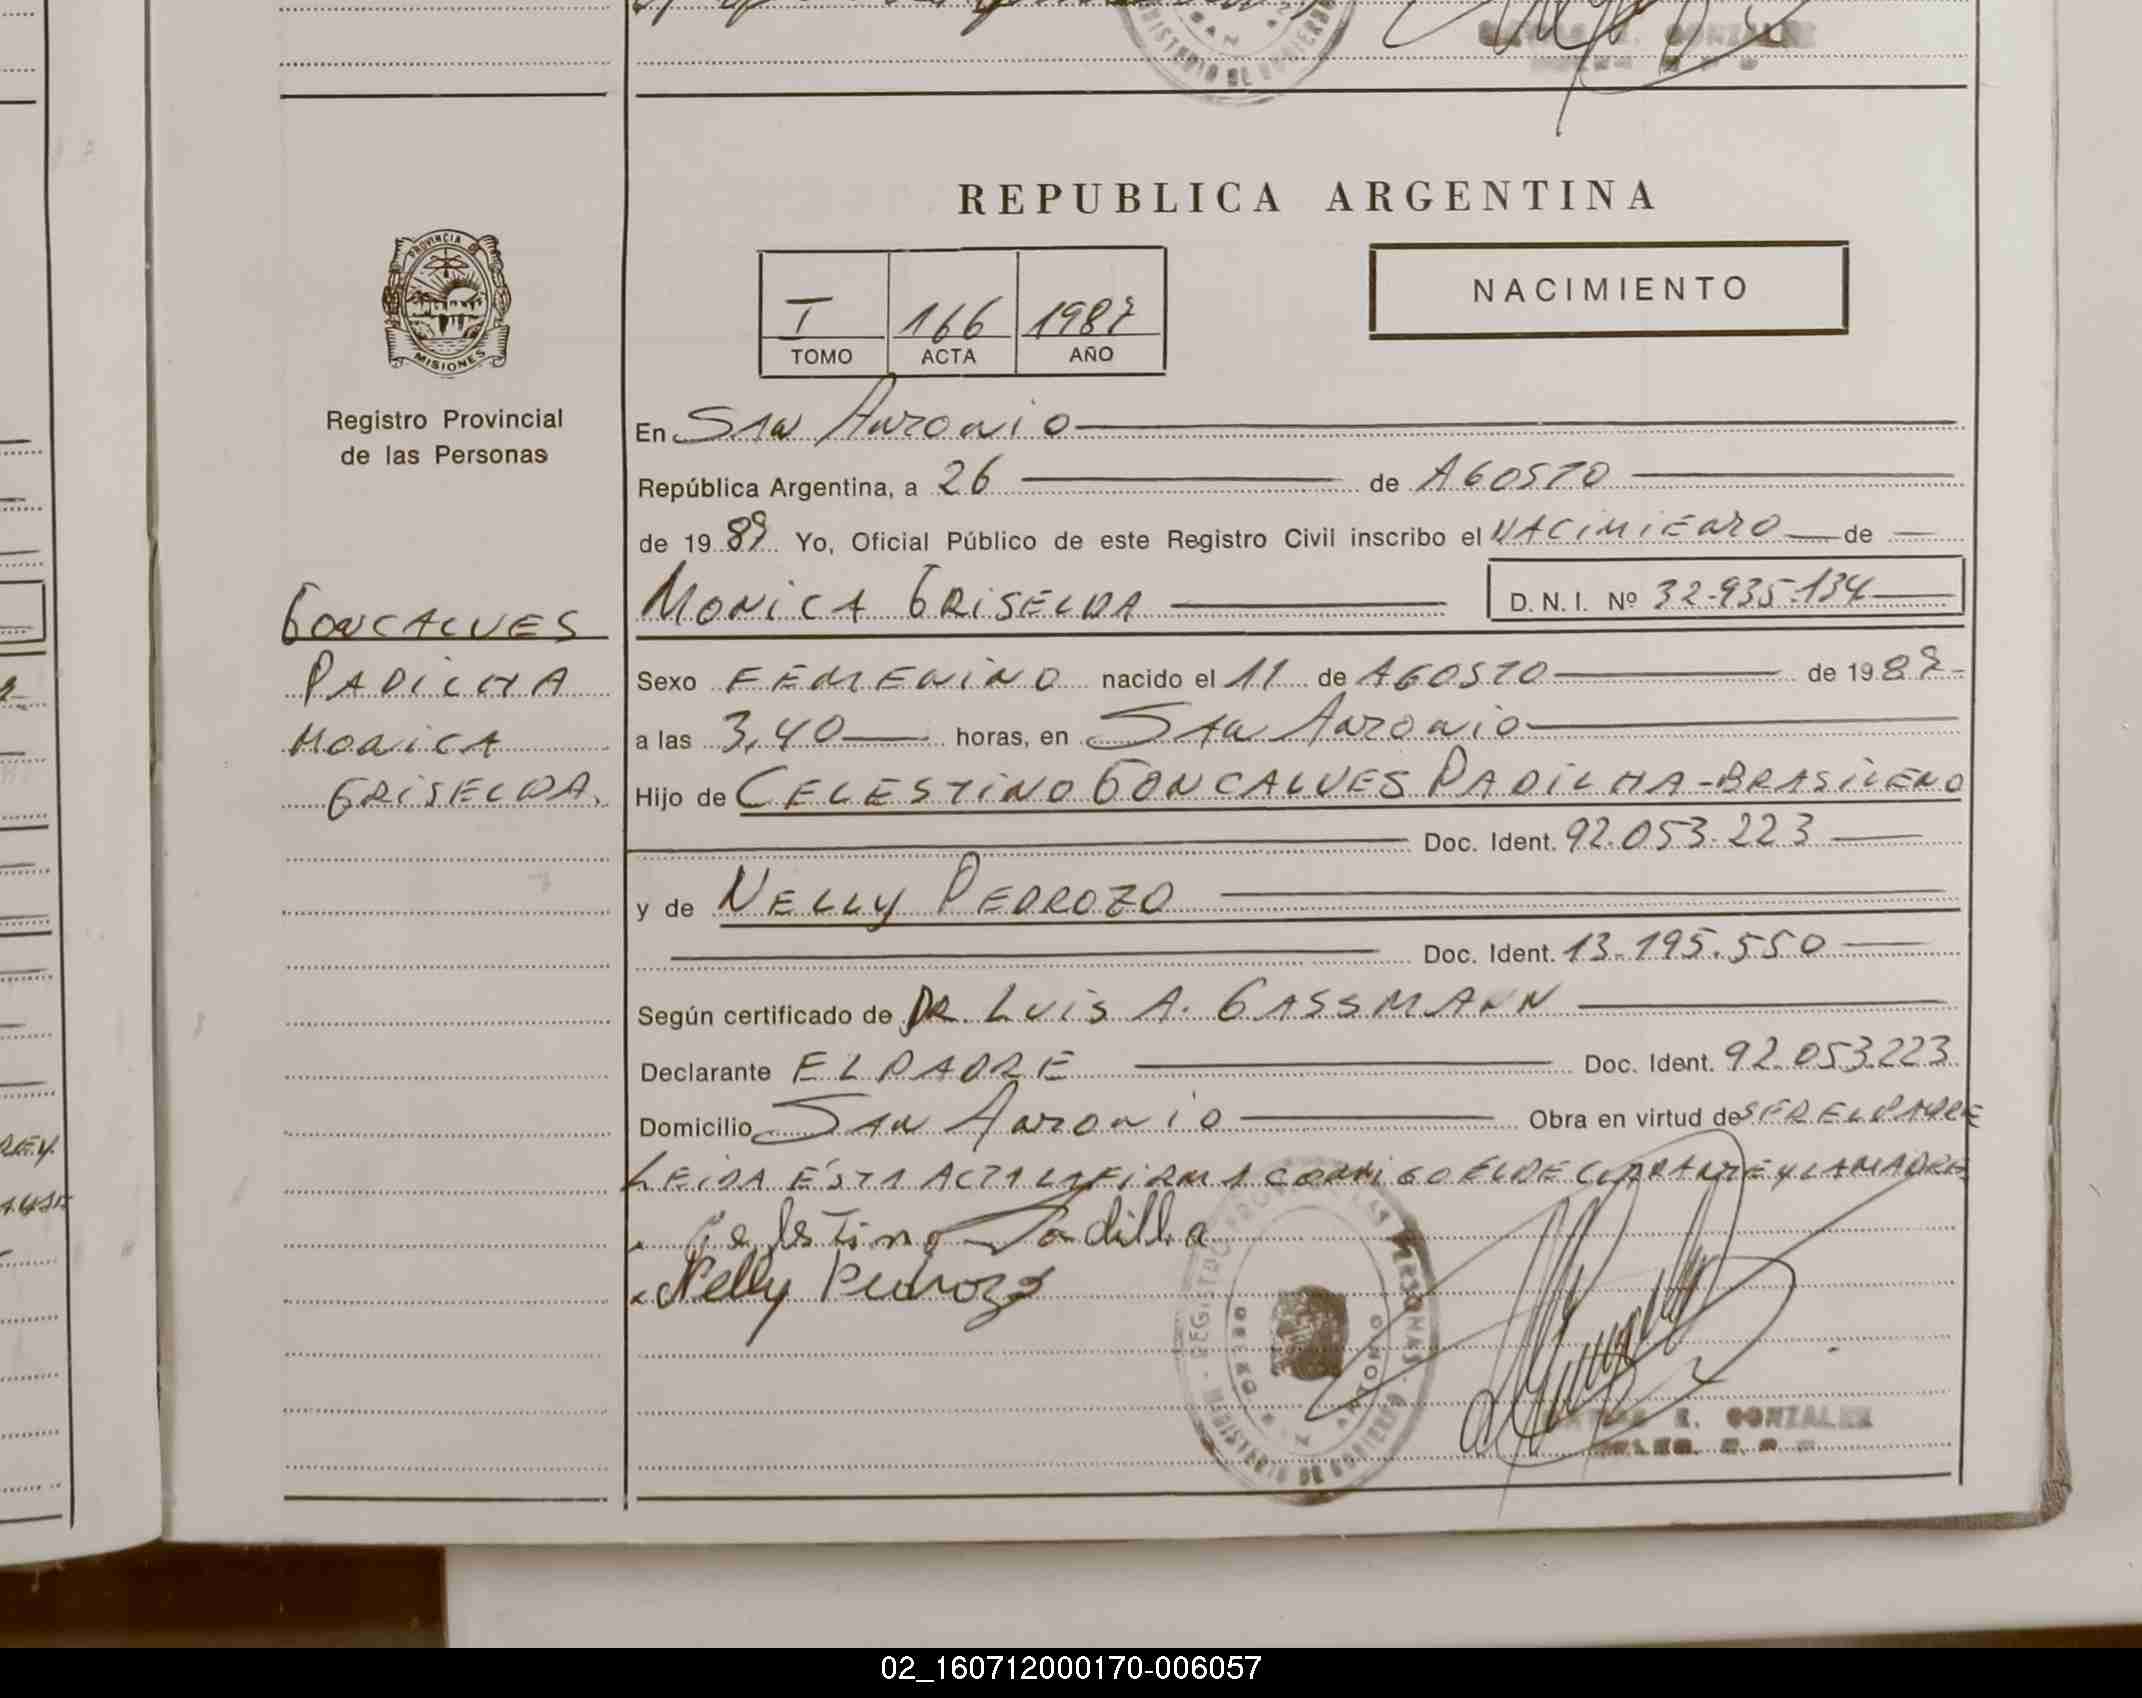 REPUBLICA ARGENTINA
PROVINCIA DE
MISIONES
Registro Provincial
de las Personas
T 166 1987
TOMO ACTA AÑO
NACIMIENTO
En San Antonio
República Argentina, a 26 de AGOSTO
de 1987 Yo, Oficial Público de este Registro Civil inscribo el NACIMIENTO de
MONICA GRISELDA D.N.I. Nº 32.935.134
GONCALVES
PADILHA
MONICA
GRISELDA.
Sexo FEMENINO nacido el 11 de AGOSTO de 1987
a las 3,40 horas, en San Antonio
Hijo de CELESTINO GONCALVES PADILHA - BRASILENO
Doc. Ident. 92.053.223
y de NELLY PEDROZO
Doc. Ident. 13.195.550
Según certificado de DR. LUIS A. GASSMANN
Declarante EL PADRE Doc. Ident. 92.053.223
Domicilio San Antonio Obra en virtud de SER EL PADRE
LEIDA ÉSTA ACTA LA FIRMA CONMIGO EL DECLARANTE Y LA MADRE
Celestino Padilha
Nelly Pedrozo
E. GONZALEZ
02_160712000170-006057